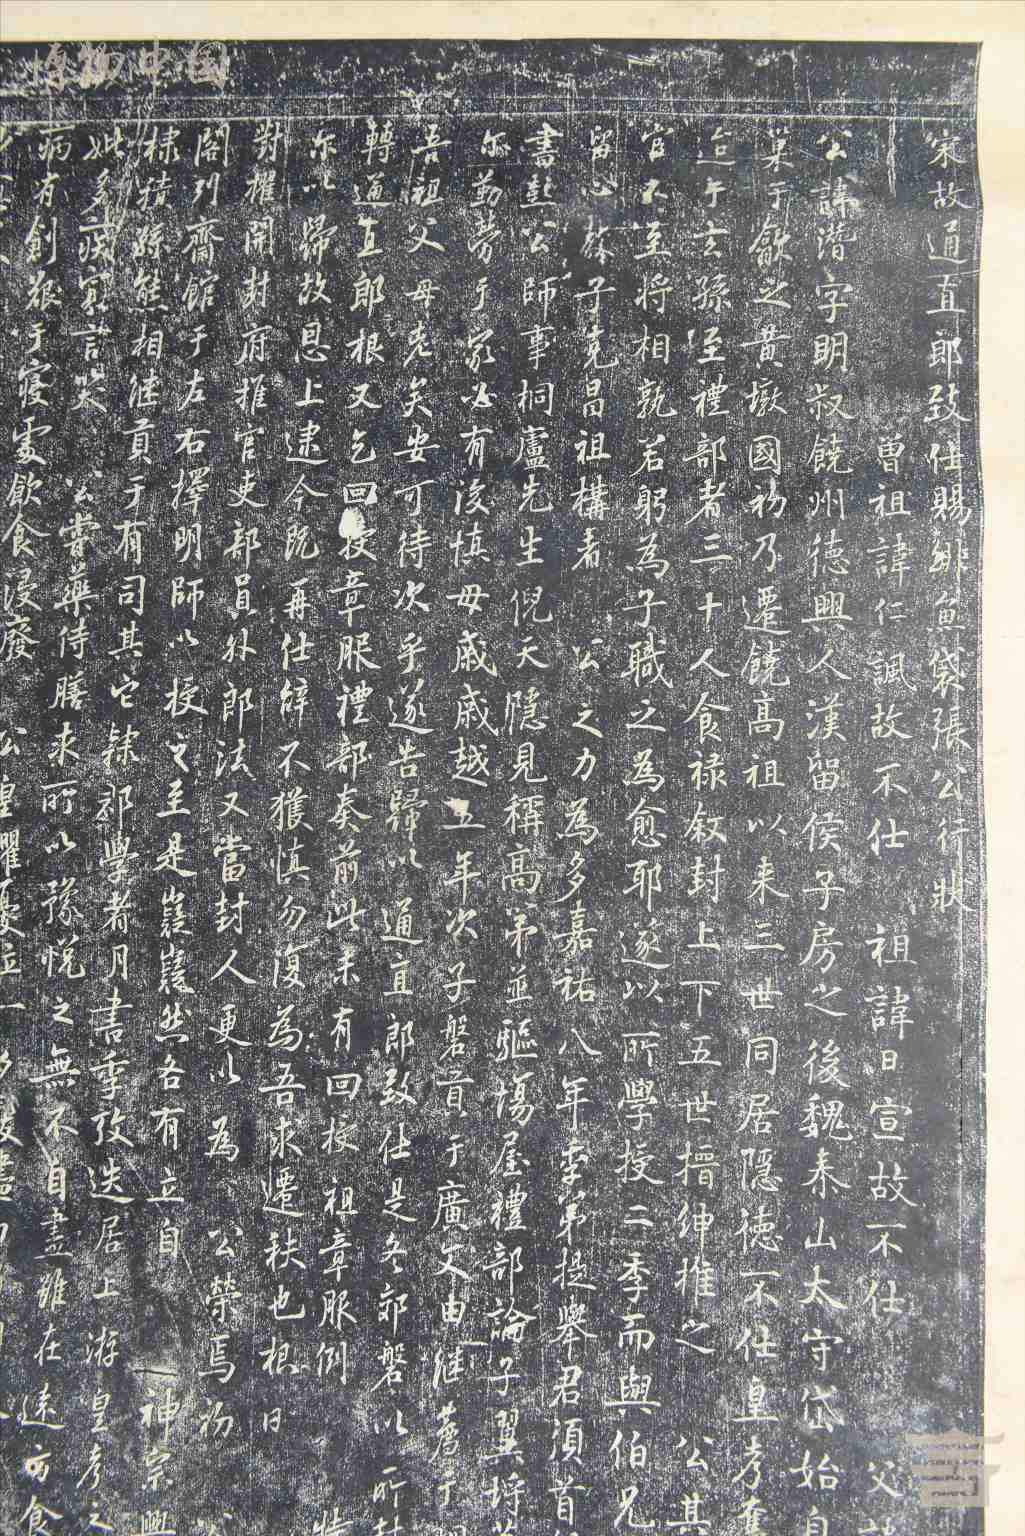 宋故通直郎致仕賜緋魚袋張公行狀
曾祖諱仁諷故不仕 祖諱日宣故不仕 父
公諱潛字明叔饒州德興人漢留侯子房之後魏泰山太守岱始自
巢于歙之黃墩國初乃遷饒高祖以来三世同居隱德不仕皇考
迨今玄孫至禮部者三十人食祿敘封上下五世搢紳推之 公其
官不至将相孰若躬為子職之為愈耶遂以所學授二季而與伯兄
留心 子克昌祖構者 公之力為多嘉祐八年季弟提舉君須首
書起公師事桐廬先生倪天隱見稱高弟並驅場屋禮部論子翼埒
尔勤勞于家必有後慎毋戚戚越五年次子磐貢于廣文由继薦于
吾祖父母老矣安可待次乎遂告歸以通直郎致仕是冬郊磐以所
轉通直郎根又乞回授章服禮部奏前此未有回授祖章服例
尔以歸故恩上逮今既再仕辞不獲慎勿復為吾求遷秩也根日
對擢開封府推官吏部員外郎法又當封人更以為 公榮焉初
閣列齋館于左右擇明師以授之至是嶷嶷然各有立自 神宗興
棣猜絲熊相继貢于有司其它隸郡學者月書季攷迭居上游皇考之
妣多疾寡言笑 公嘗藥侍膳求所以豫悦之無不自盡雖在遠方食
病有創艱于寝處飲食浸廢 公皇